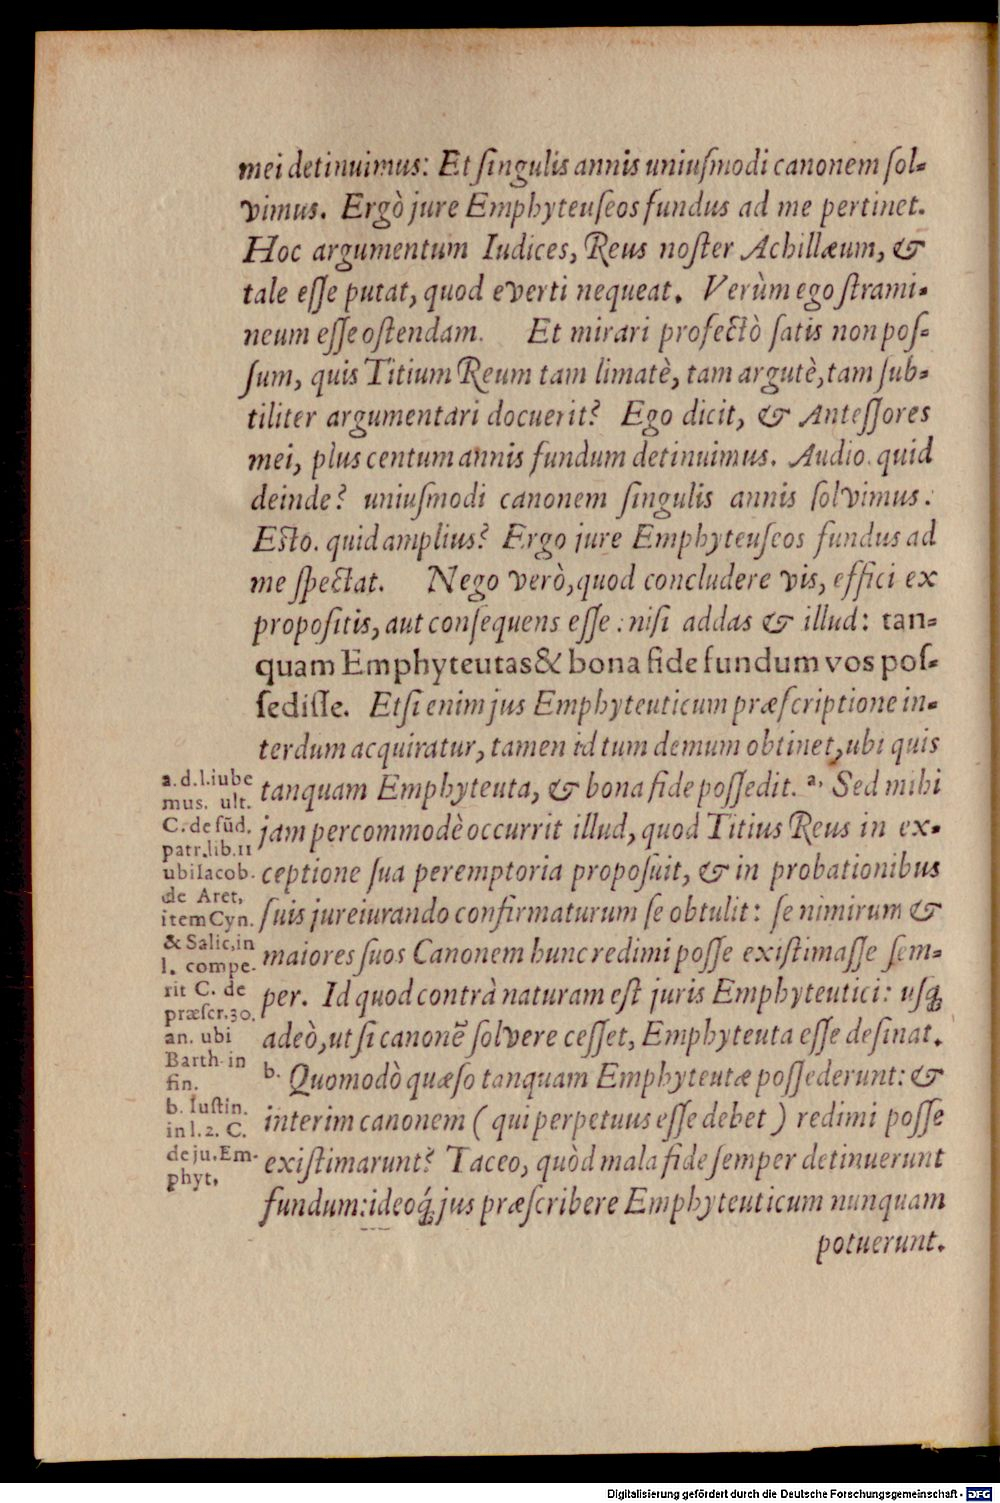 mei detinuimus: Et ſingulis annis uniuſmodi canonem ſol-
vimus. Ergò jure Emphyteuſeos fundus ad me pertinet.
Hoc argumentum Iudices, Reus noſter Achillæum, &
tale eſſe putat, quod everti nequeat. Verùm ego ſtrami-
neum eſſe oſtendam. Et mirari profectò ſatis non poſ-
ſum, quis Titium Reum tam limatè, tam argutè, tam ſub-
tiliter argumentari docuerit? Ego dicit, & Anteſſores
mei, plus centum annis fundum detinuimus. Audio. quid
deinde? uniuſmodi canonem ſingulis annis ſolvimus.
Eſto. quid amplius? Ergo jure Emphyteuſeos fundus ad
me ſpectat. Nego verò, quod concludere vis, effici ex
propoſitis, aut conſequens eſſe: niſi addas & illud: tan-
quam Emphyteutas & bona fide fundum vos poſ-
ſediſſe. Etſi enim jus Emphyteuticum præſcriptione in-
terdum acquiratur, tamen id tum demum obtinet, ubi quis
tanquam Emphyteuta, & bona fide poſſedit. a. Sed mihi
jam percommodè occurrit illud, quod Titius Reus in ex-
ceptione ſua peremptoria propoſuit, & in probationibus
ſuis jureiurando confirmaturum ſe obtulit: ſe nimirum &
maiores ſuos Canonem hunc redimi poſſe exiſtimaſſe ſem-
per. Id quod contrà naturam eſt juris Emphyteutici: uſq́;
adeò, ut ſi canonē ſolvere ceſſet, Emphyteuta eſſe deſinat.
b. Quomodò quæſo tanquam Emphyteutæ poſſederunt: &
interim canonem ( qui perpetuus eſſe debet ) redimi poſſe
exiſtimarunt? Taceo, quòd mala fide ſemper detinuerunt
fundum: ideoq́; jus præſcribere Emphyteuticum nunquam
potuerunt.
a. d. l. iube
mus. ult.
C. de fūd.
patr. lib. 11
ubi Iacob.
de Aret,
item Cyn.
& Salic, in
l. compe-
rit C. de
præſcr. 30.
an. ubi
Barth in
fin.
b. Iuſtin.
in l. 2. C.
de ju. Em-
phyt.
Digitalisierung gefördert durch die Deutsche Forschungsgemeinschaft - DFG